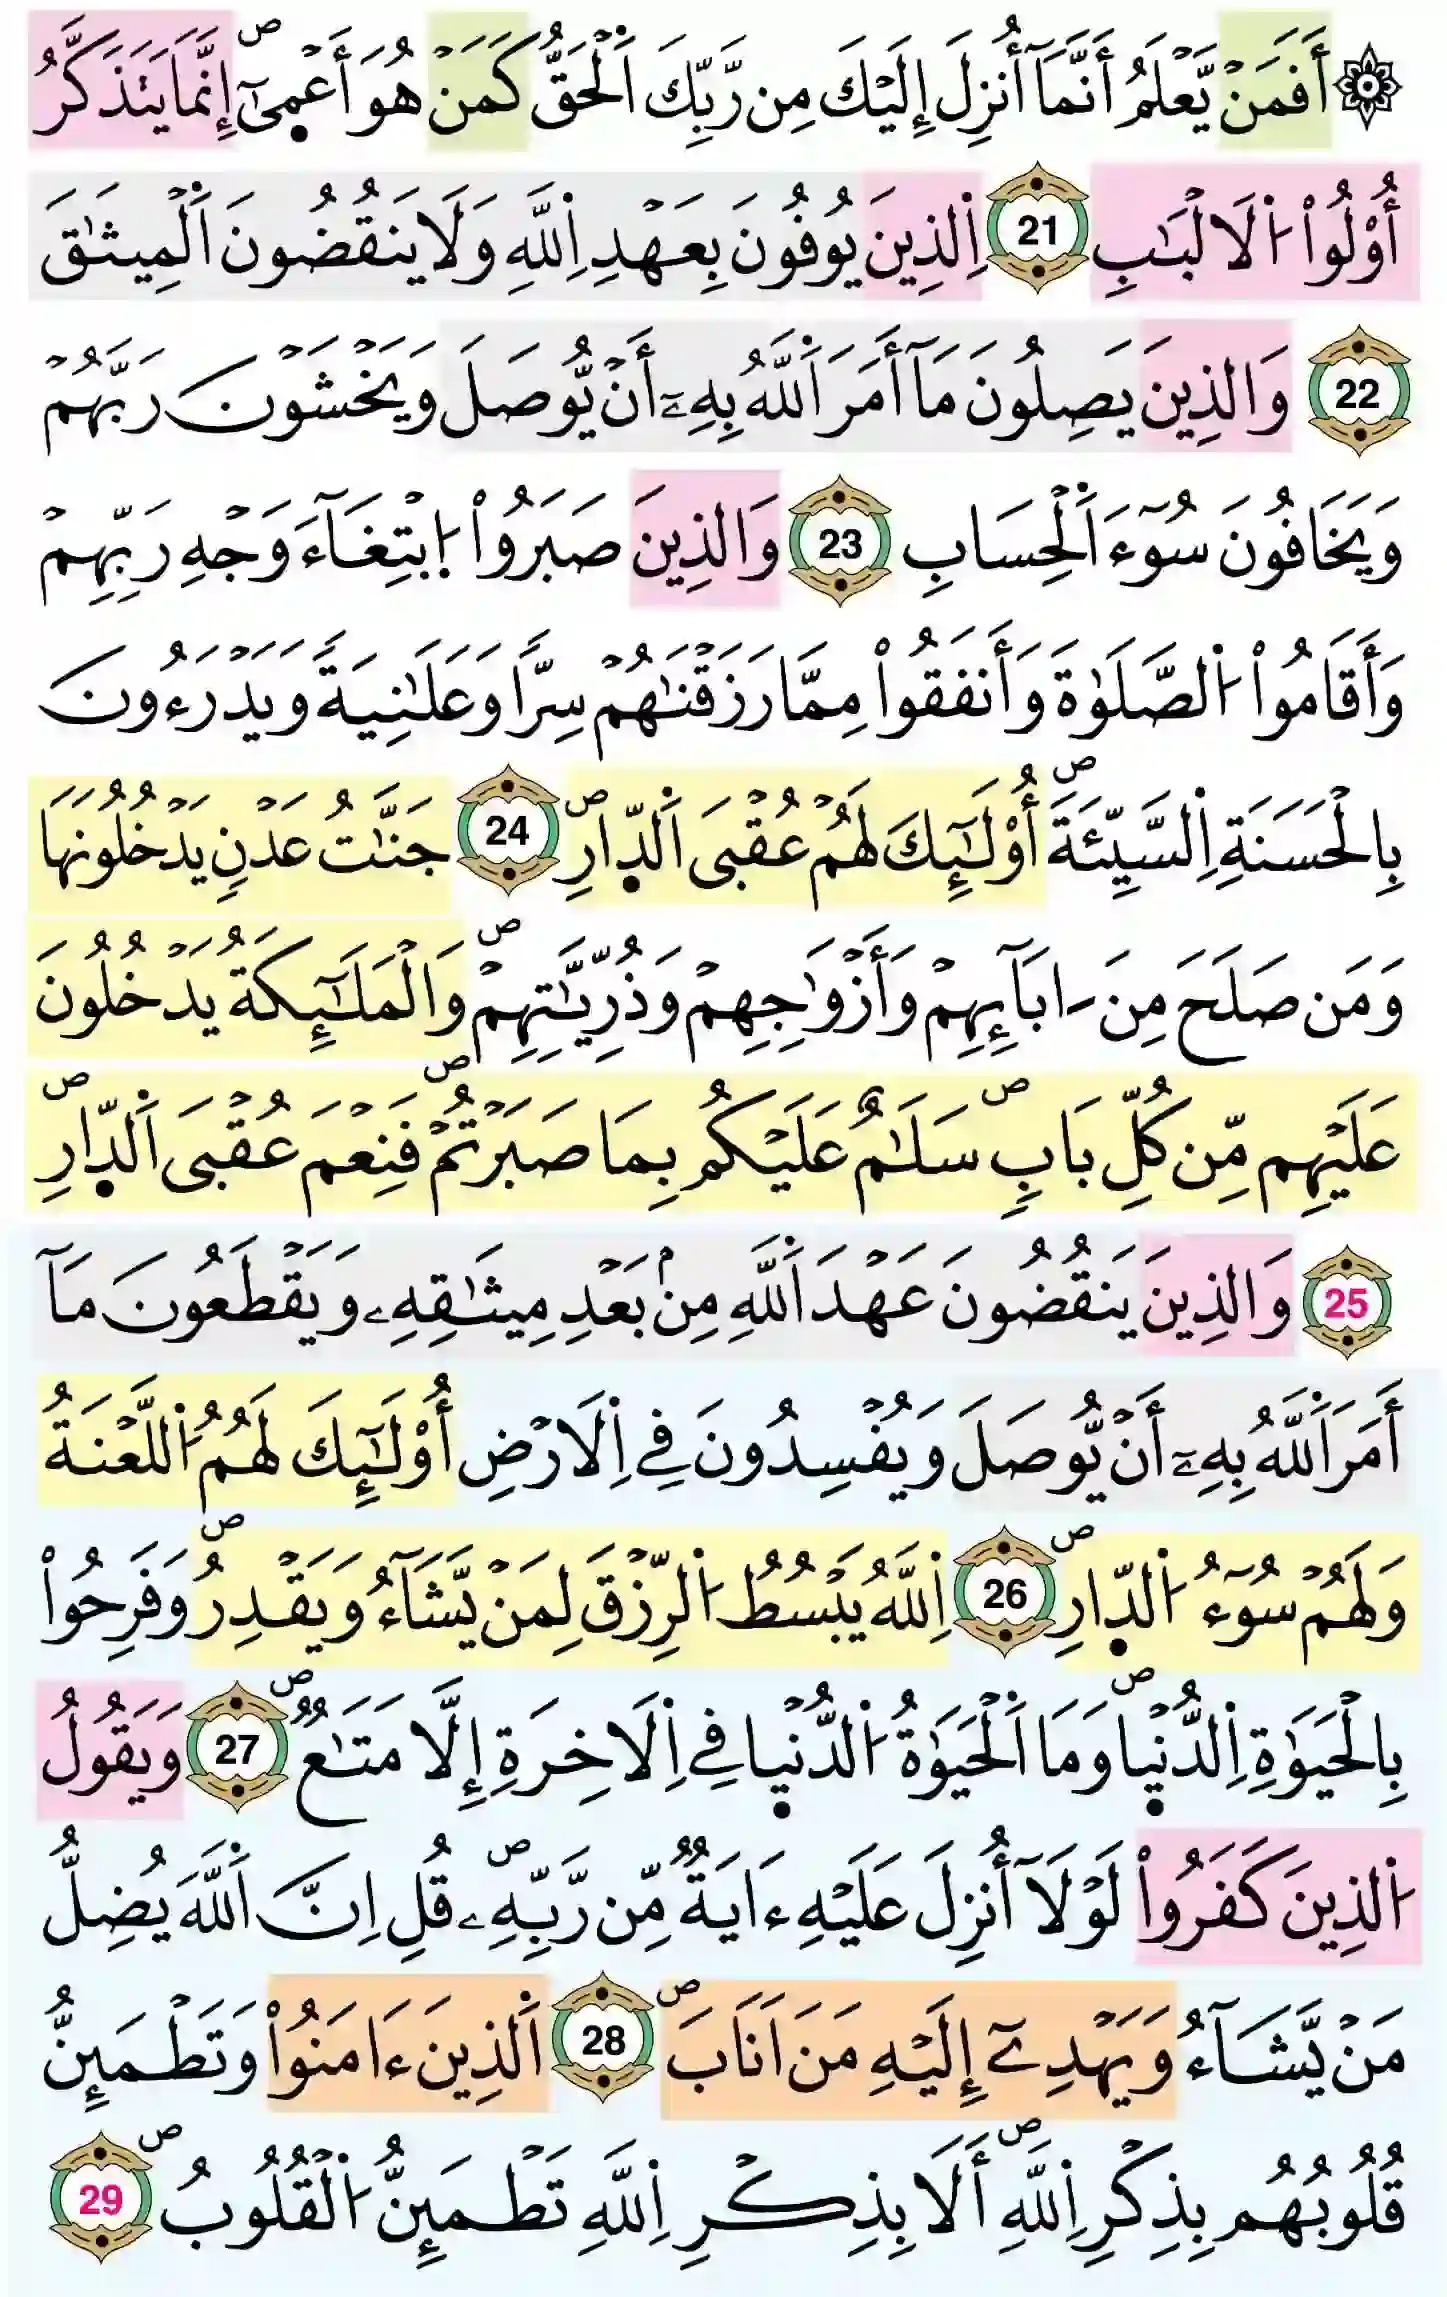 ۞ أَفَمَنْ يَّعْلَمُ أَنَّمَآ أُنزِلَ إِلَيْكَ مِن رَّبِّكَ اَ۬لْحَقُّ كَمَنْ هُوَ أَعْم۪ىٰٓۖ إِنَّمَا يَتَذَكَّرُ
أُوْلُواْ اُ۬لَالْبَٰبِ 21 اِ۬لذِينَ يُوفُونَ بِعَهْدِ اِ۬للَّهِ وَلَا يَنقُضُونَ اَ۬لْمِيثَٰقَ
22 وَالذِينَ يَصِلُونَ مَآ أَمَرَ اَ۬للَّهُ بِهِۦٓ أَنْ يُّوصَلَ وَيَخْشَوْنَ رَبَّهُمْ
وَيَخَافُونَ سُوٓءَ اَ۬لْحِسَابِ 23 وَالذِينَ صَبَرُواْ اُ۪بْتِغَآءَ وَجْهِ رَبِّهِمْ
وَأَقَامُواْ اُ۬لصَّلَوٰةَ وَأَنفَقُواْ مِمَّا رَزَقْنَٰهُمْ سِرّاً وَعَلَٰنِيَةً وَيَدْرَءُونَ
بِالْحَسَنَةِ اِ۬لسَّيِّئَةَۖ أُوْلَٰٓئِكَ لَهُمْ عُقْبَى اَ۬لدّ۪ارِۖ 24 جَنَّٰتُ عَدْنٍ يَدْخُلُونَهَا
وَمَن صَلَحَ مِنَ اٰبَآئِهِمْ وَأَزْوَٰجِهِمْ وَذُرِّيَّٰتِهِمْۖ وَالْمَلَٰٓئِكَةُ يَدْخُلُونَ
عَلَيْهِم مِّن كُلِّ بَابٖۖ سَلَٰمٌ عَلَيْكُم بِمَا صَبَرْتُمْۖ فَنِعْمَ عُقْبَى اَ۬لدّ۪ارِۖ
25 وَالذِينَ يَنقُضُونَ عَهْدَ اَ۬للَّهِ مِنۢ بَعْدِ مِيثَٰقِهِۦ وَيَقْطَعُونَ مَآ
أَمَرَ اَ۬للَّهُ بِهِۦٓ أَنْ يُّوصَلَ وَيُفْسِدُونَ فِے اِ۬لَارْضِ أُوْلَٰٓئِكَ لَهُمُ اُ۬للَّعْنَةُ
وَلَهُمْ سُوٓءُ اُ۬لدّ۪ارِۖ 26 اِ۬للَّهُ يَبْسُطُ اُ۬لرِّزْقَ لِمَنْ يَّشَآءُ وَيَقْدِرُۖ وَفَرِحُواْ
بِالْحَيَوٰةِ اِ۬لدُّنْي۪اۖ وَمَا اَ۬لْحَيَوٰةُ اُ۬لدُّنْي۪ا فِے اِ۬لَاخِرَةِ إِلَّا مَتَٰعٌۖ 27 وَيَقُولُ
اُ۬لذِينَ كَفَرُواْ لَوْلَآ أُنزِلَ عَلَيْهِ ءَايَةٌ مِّن رَّبِّهِۦۖ قُلِ اِنَّ اَ۬للَّهَ يُضِلُّ
مَنْ يَّشَآءُ وَيَهْدِےٓ إِلَيْهِ مَنَ اَنَابَۖ 28 اَ۬لذِينَ ءَامَنُواْ وَتَطْمَئِنُّ
قُلُوبُهُم بِذِكْرِ اِ۬للَّهِۖ أَلَا بِذِكْرِ اِ۬للَّهِ تَطْمَئِنُّ اُ۬لْقُلُوبُۖ 29